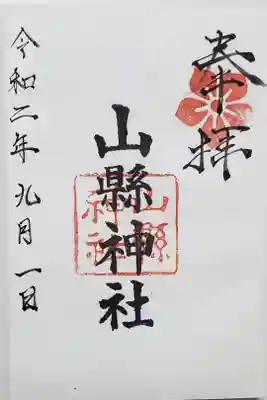 奉拝
山縣神社
山縣神社
令和二年九月一日